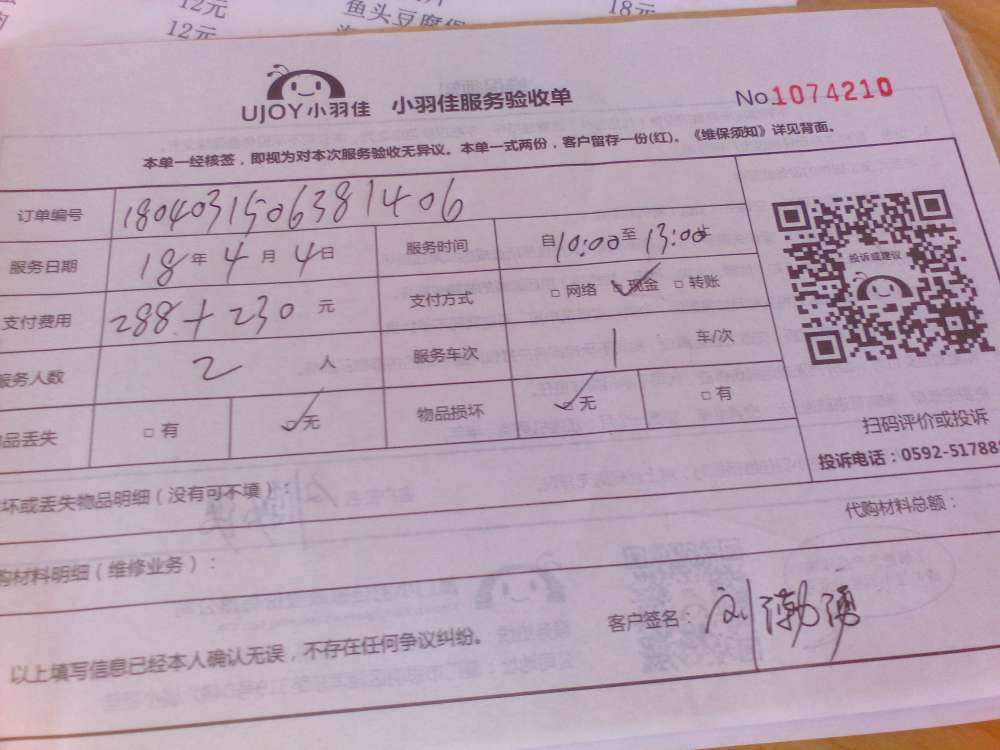 12元
鱼头豆腐
18元
12元
UJOY小羽佳 小羽佳服务验收单 No.1074210
本单一经核签，即视为对本次服务验收无异议。本单一式两份，客户留存一份(红)。《维保须知》详见背面。
订单编号 1804031506381406
服务日期 18年4月4日 服务时间 自10:00至13:00止
支付费用 288+230元 支付方式 □网络 ☑现金 □转账
服务人数 2人 服务车次 1车/次
品丢失 □有 ☑无 物品损坏 ☑无 □有
投诉或建议
扫码评价或投诉
投诉电话：0592-51788
坏或丢失物品明细（没有可不填）：
代购材料总额：
购材料明细（维修业务）：
客户签名：刘渤湧
以上填写信息已经本人确认无误，不存在任何争议纠纷。